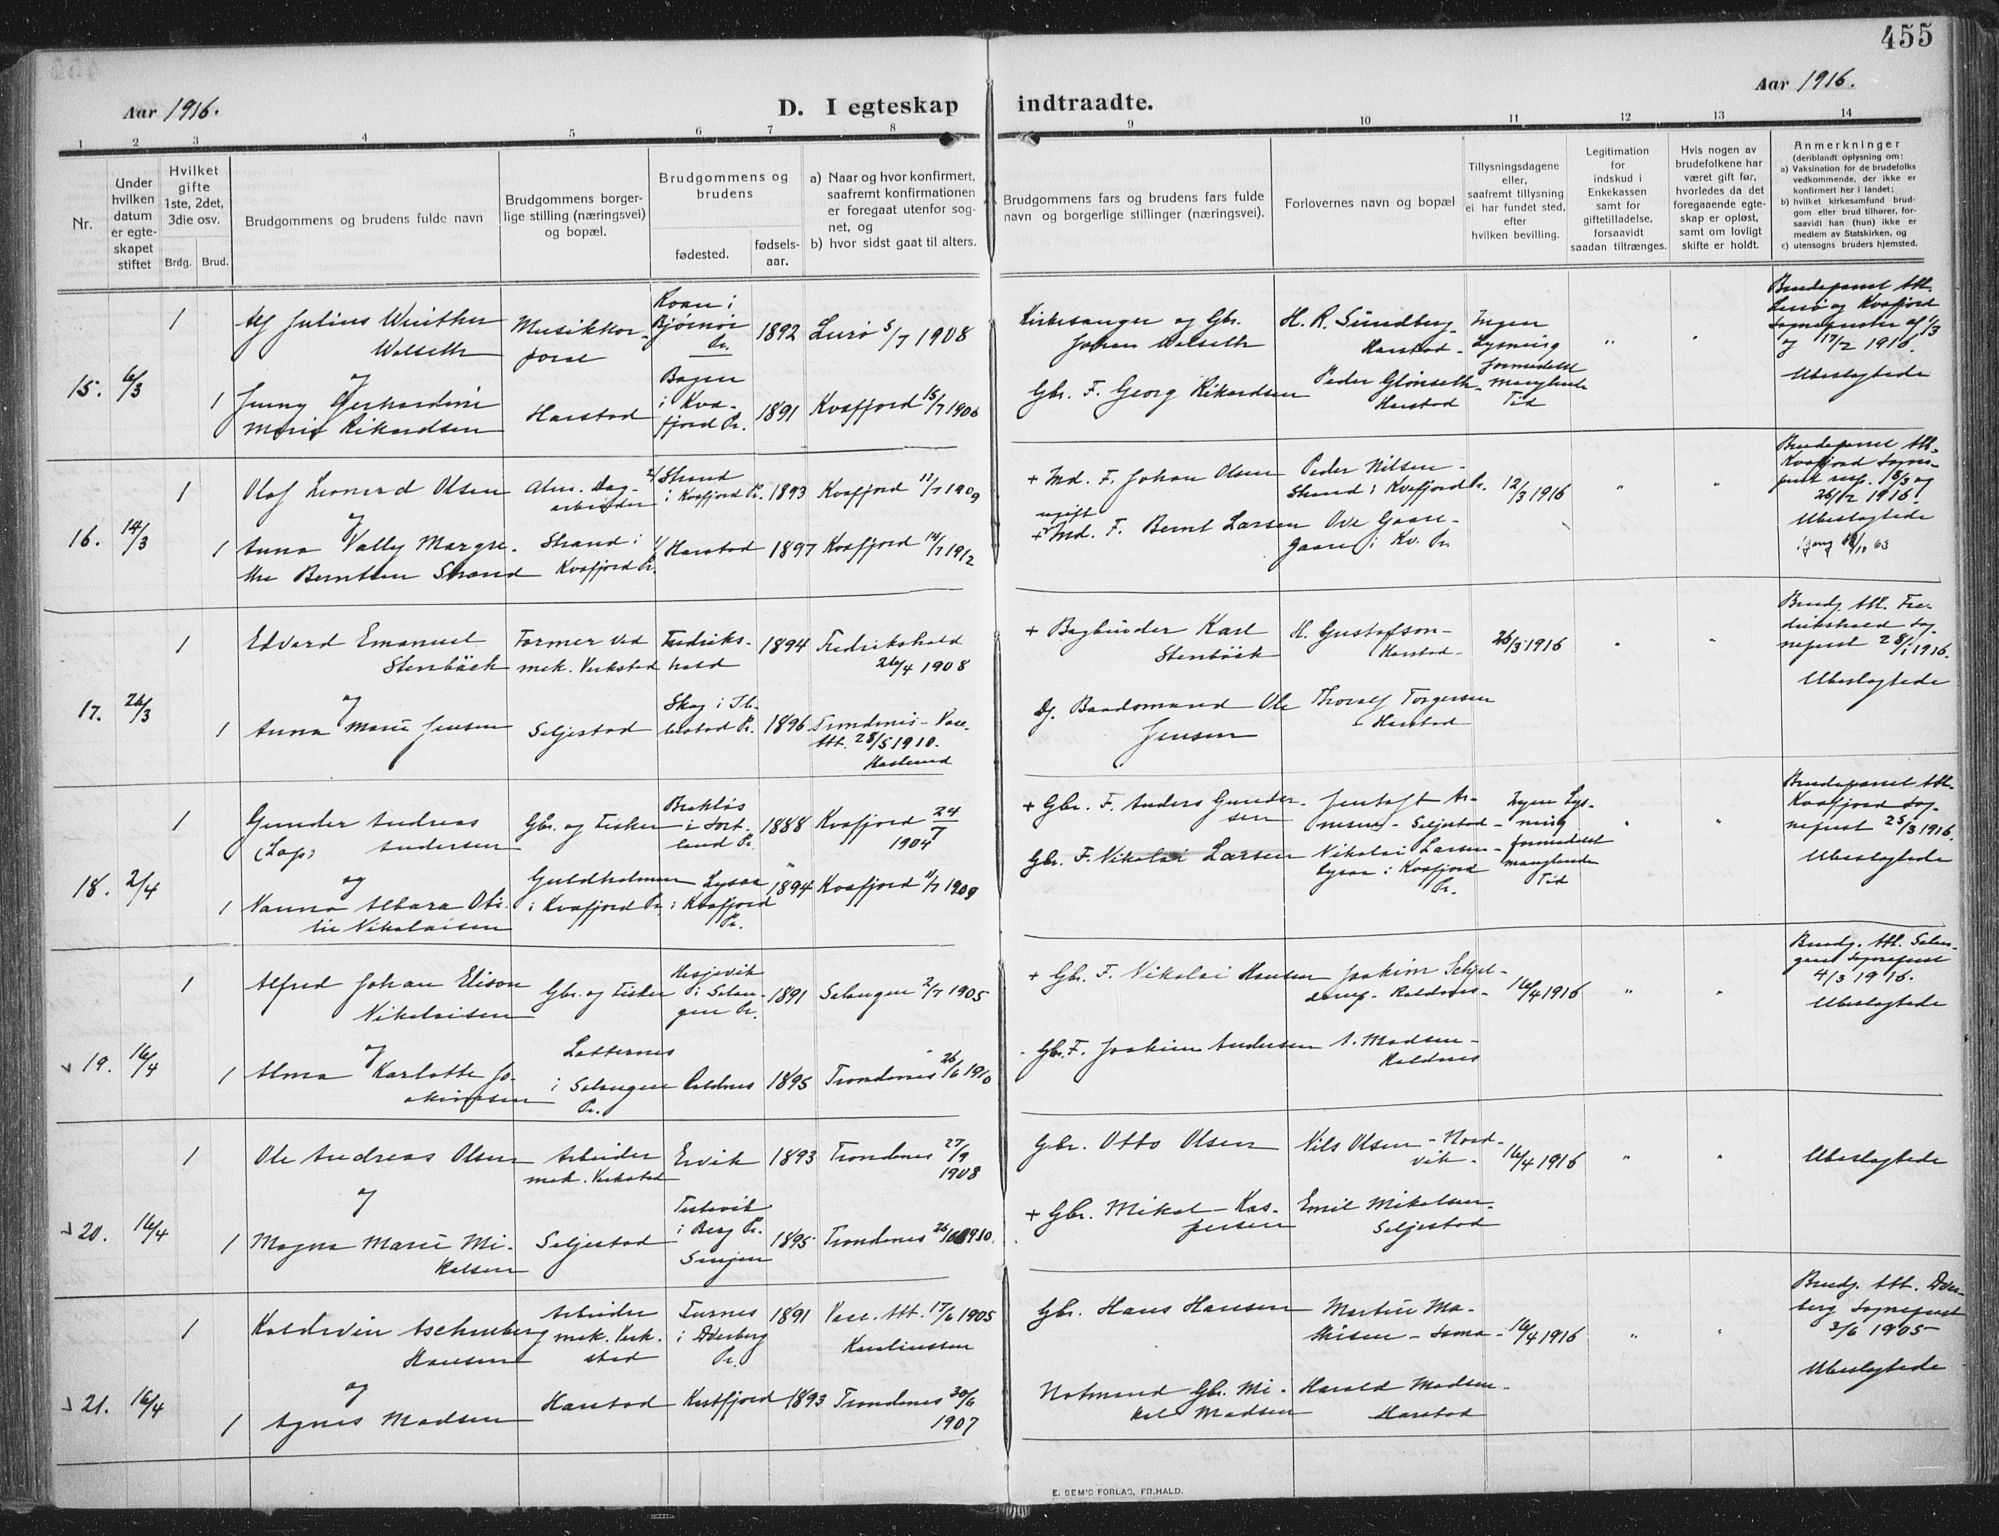 455
Aar 1916.
D. I egteskap indtraadte.
Aar 1916.
1 2 3 4 5 6 7 8 9 10 11 12 13 14
Nr.
Under hvilken datum er egteskapet stiftet
Hvilket gifte 1ste, 2det, 3die osv.
Brdg. Brud.
Brudgommens og brudens fulde navn
Brudgommens borgerlige stilling (næringsvei) og bopæl.
Brudgommens og brudens
fødested.
fødselsaar.
a) Naar og hvor konfirmert, saafremt konfirmationen er foregaat utenfor sognet, og
b) hvor sidst gaat til alters.
Brudgommens fars og brudens fars fulde navn og borgerlige stillinger (næringsvei).
Forlovernes navn og bopæl
Tillysningsdagene eller, saafremt tillysning ei har fundet sted, efter hvilken bevilling.
Legitimation for indskud i Enkekassen samt for giftetilladelse, forsaavidt saadan tiltrænges.
Hvis nogen av brudefolkene har været gift før, hvorledes da det foregaaende egteskap er opløst, samt om lovligt skifte er holdt.
Anmerkninger
(deriblandt oplysning om:
a) Vaksination for de brudefolks vedkommende, der ikke er konfirmert her i landet;
b) hvilket kirkesamfund brudgom eller brud tilhører, forsaavidt han (hun) ikke er medlem av Statskirken, og
c) utensogns bruders hjemsted.
15. 6/3
1 Alf Julius Winther
Walseth
Musikkorporal
Roan i
Bjørnør
Pr.
1892 Lurø 5/7 1908
Kirkesanger og Gbr.
Johan Walseth
H. R. Sundberg
Harstad
Ingen
Lysning
formedelst
manglende
Tid
Brudeparret Att.
Lurø og Kvæfjord
Sogneprester af 1/3
og 17/2 1916.
Ubeslægtede
og
1 Jenny Gerhardine
Marie Rikardsen
Harstad
i Kvæ-
fjord Pr.
1891 Kvæfjord 15/7 1906
Gbr. F. Georg Rikardsen
Peder Glønseth
Harstad
16. 14/3
1 Olaf Leonard Olsen
Alm. Dag-
arbeider
Strand
i Kvæfjord Pr.
1893 Kvæfjord 11/7 1909
+ Md. F. Johan Olsen
Peder Nilsen
Strand i Kvæfjord Pr.
12/3 1916
Brudeparret Att.
Kvæfjord Sogne-
prest resp. 18/3 og
26/2 1916.
Ubeslægtede
og
1 Anna Vally Margre-
the Berntsen Strand
Strand i
Kvæfjord Pr.
Harstad 1897 Kvæfjord 14/7 1912
ugift
+ Md. F. Bernt Larsen
Ove Gaare
Gaare i Kv. Pr.
17. 26/3
1 Edvard Emanuel
Stenbäck
Former ved
mek. Verksted
Fredriks-
hald
1894 Fredrikshald
26/4 1908
+ Bogbinder Karl
Stenbäck
H. Gustafson
Harstad
26/3 1916
Brudg. Att. Fre-
drikshald Sog-
neprest 28/1 1916.
Ubeslægtede
og
1 Anna Marie Jensen
Seljestad
Skog i Ib-
bestad Pr.
1896 Trondenes Vacc.
Att. 28/5 1910.
Haslund
Dj. Baadsmand Ole
Jensen
Thoralf Torgersen
Harstad
18. 2/4
1 Gunder Andreas
(Lap) Andersen
Gbr. og Fisker
Brokløs
i Sort-
land Pr.
1888 Kvæfjord 24/7
1904
+ Gbr. F. Anders Gunder-
sen
Jentoft Ar-
nesen - Seljestad
Ingen Lys-
ning
formedelst
manglende
Tid
Brudeparret Att.
Kvæfjord Sog-
neprest 25/3 1916.
Ubeslægtede
og
1 Nanna Albara Oti-
lie Nikolaisen
Guldholmen
i Kvæfjord Pr.
Lysaa
i Kvæfjord
Pr.
1894 Kvæfjord 11/7 1909
Gbr. F. Nikolai Larsen
Nikolai Larsen
Lysaa i Kvæfjord
Pr.
19. 16/4
1 Alfred Johan Elison
Nikolaisen
Gbr. og Fisker
Hesjevik
i Salan-
gen Pr.
1891 Salangen 2/7 1905
+ Gbr. F. Nikolai Hansen
Joakim Schjel-
derup - Kaldnes
16/4 1916
Brudg. Att. Salan-
gen Sogneprest
4/3 1916.
Ubeslægtede
og
1 Alma Karlotte Jo-
akimsen
Laberget
i Salangen
Pr.
Kaldnes 1895 Trondenes 26/6 1910
Gbr. F. Joakim Andersen
A. Madsen
Kaldnes
20. 16/4
1 Ole Andreas Olsen
Arbeider
mek. Verksted
Ervik 1893 Trondenes 27/9
1908
Gbr. Otto Olsen
Nils Olsen - Nord-
vik
16/4 1916
Ubeslægtede
og
1 Magna Marie Mi-
kalsen
Seljestad
i Berg Pr.
Senjen
1895 Trondenes 26/6 1910
+ Gbr. Mikal Kas-
persen
Emil Mikalsen
Seljestad
21. 16/4
1 Kaldevin Aschenberg
Hansen
Arbeider
mek. Verk-
sted
Furnes
i Dverberg
Pr.
1891 Vacc. Att. 17/6 1905
Karoliussen
Gbr. Hans Hansen
Martin Ma-
thisen - Sama
16/4 1916
Brudg. Att. Dver-
berg Sogneprest
3/6 1905
Ubeslægtede
og
1 Agnes Madsen
Harstad
Kastfjord 1893 Trondenes 30/6
1907
Notmand Gbr. Mi-
kal Madsen
Harald Madsen
Harstad
E. SEM'S FORLAG, FR.HALD.